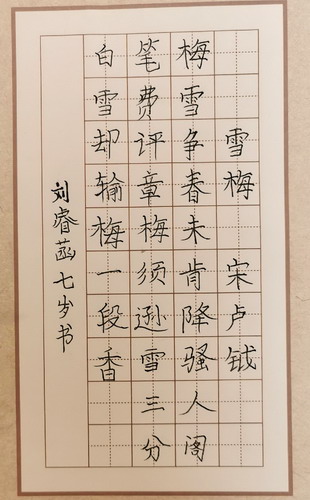 雪梅 宋卢钺
梅雪争春未肯降骚人阁
笔费评章梅须逊雪三分
白雪却输梅一段香
刘睿菡七岁书